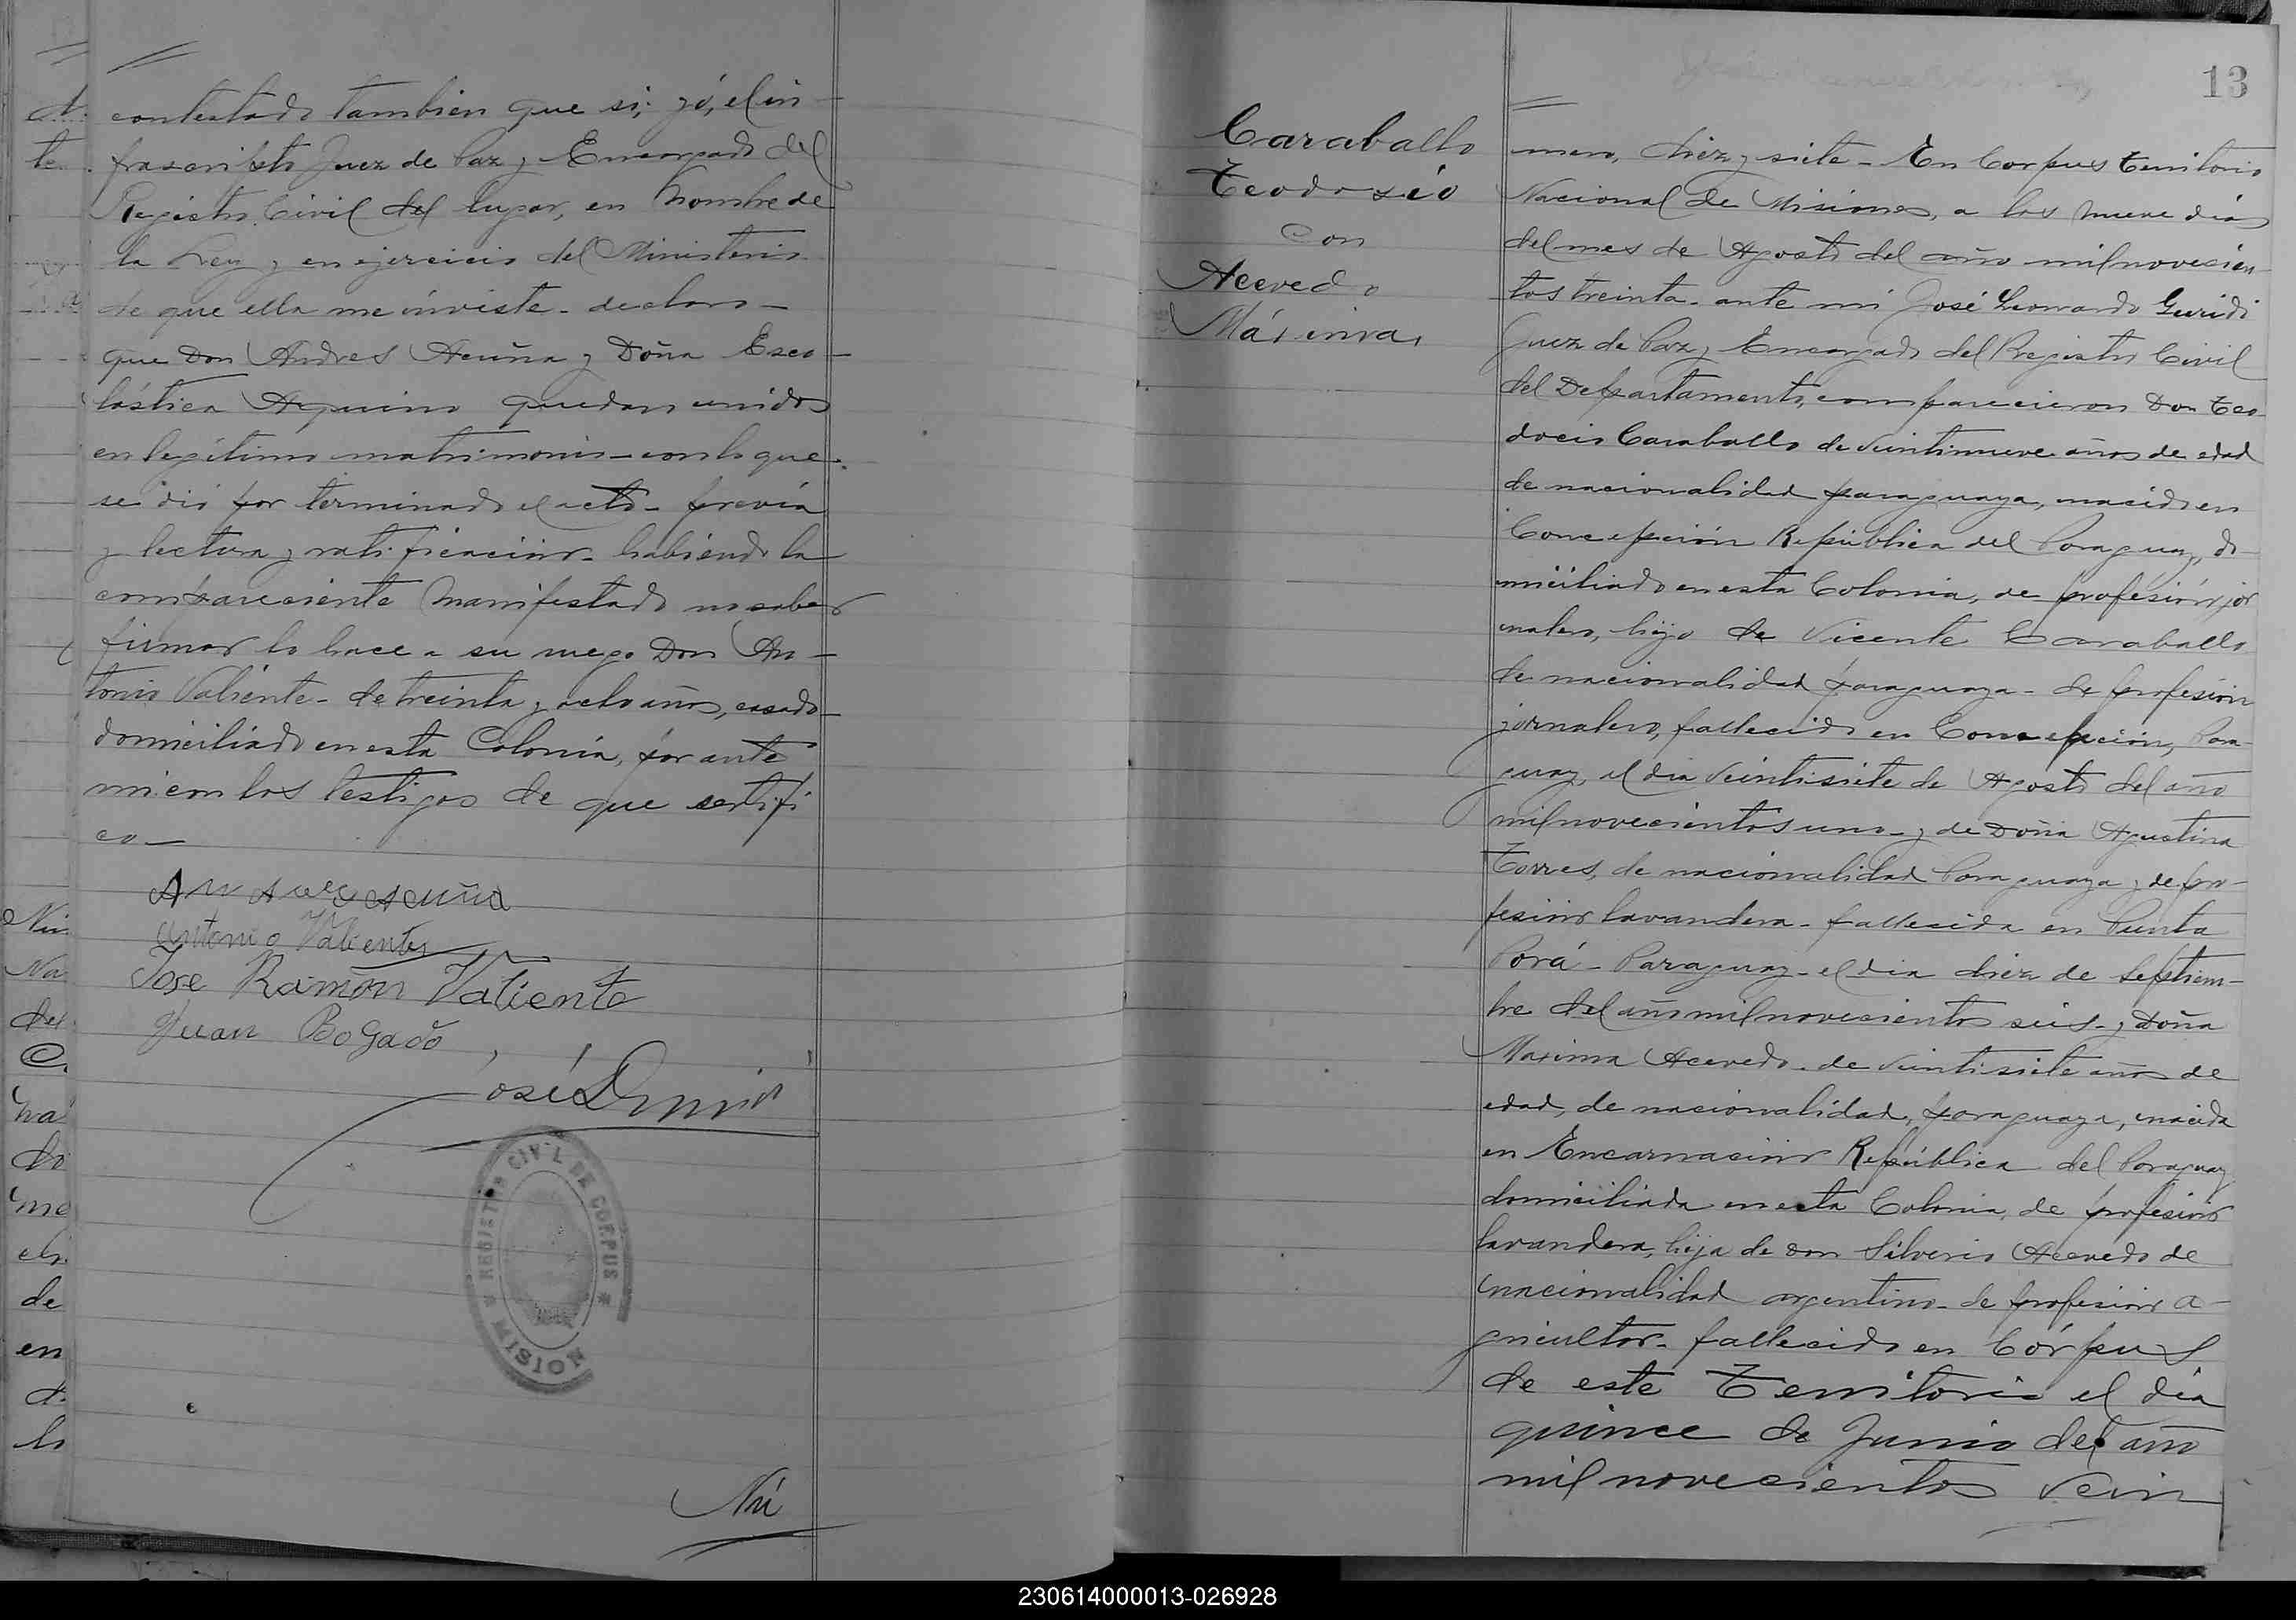 contestado tambien que si; yó, el in-
frascripto Juez de Paz y Encargado del
Registro Civil del lugar, en nombre de
la Ley y en ejercicio del Ministerio
de que ella me inviste - declaro -
que Don Andres Acuña y Doña Esco-
lástica Aquino quedan unidos
en legítimo matrimonio - con lo que
se dió por terminado el acto - previa
y lectura y ratificación - habiendo la
compareciente manifestado no saber
firmar lo hace a su ruego Don An-
tonio Valiente - de treinta y ocho años, casado
domiciliado en esta Colonia, por ante
mi con los testigos de que sertifi
co -
Andres Acuña
Antonio Valiente
Jose Ramón Valiente
Juan Bogado
José L
REGISTRO CIVIL DE CORPUS
MISIONES
Nú
13
Caraballo
Teodosio
Con
Acevedo
Máxima
mero, diez y siete - En Corpus Territorio
Nacional de Misiones, a los nueve días
del mes de Agosto del año mil novecien-
tos treinta - ante mi José Leonardo Guridi
Juez de Paz y Encargado del Registro Civil
del Departamento, comparecieron Don Teo-
docio Caraballo de veintinueve años de edad
de nacionalidad paraguaya, nacido en
Concepción República del Paraguay, do-
miciliado en esta Colonia, de profesión jor
nalero, hijo de Vicente Caraballo
de nacionalidad paraguaya - de profesión
jornalero, fallecido en Concepción, Para-
guay, el dia veintisiete de Agosto del año
mil novecientos uno - y de Doña Agustina
Torres, de nacionalidad Paraguaya y de pro-
fesión lavandera - fallecida en Punta
Porá - Paraguay - el dia diez de Septiem-
bre del año mil novecientos seis - y Doña
Maxima Acevedo - de veintisiete años de
edad, de nacionalidad, paraguaya, nacida
en Encarnación República del Paraguay
domiciliada en esta Colonia, de profesión
lavandera, hija de Don Silverio Acevedo de
nacionalidad argentino - de profesión a-
gricultor - fallecido en Córpus
de este Territorio el día
quince de Junio del año
mil novecientos vein
230614000013-026928